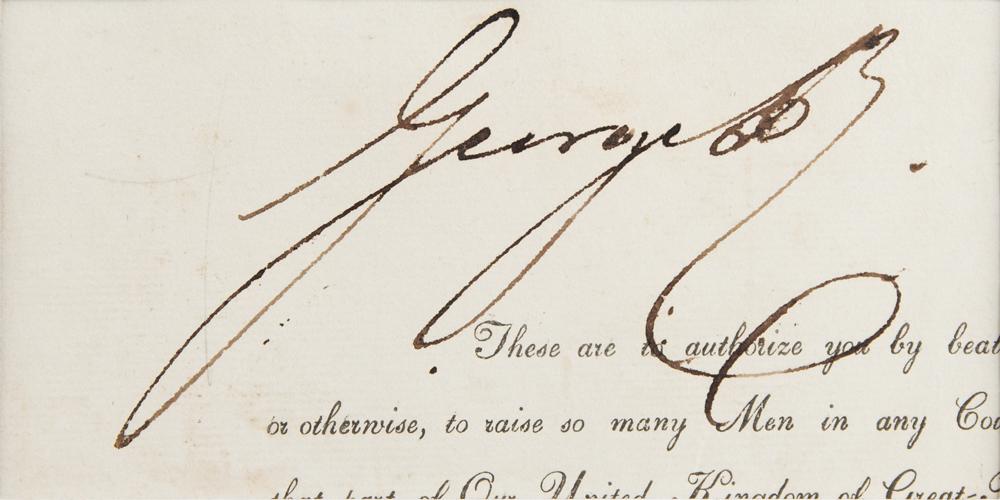 George R.
These are to authorize you by beat
or otherwise, to raise so many Men in any Cou
that part of Our United Kingdom of Great-